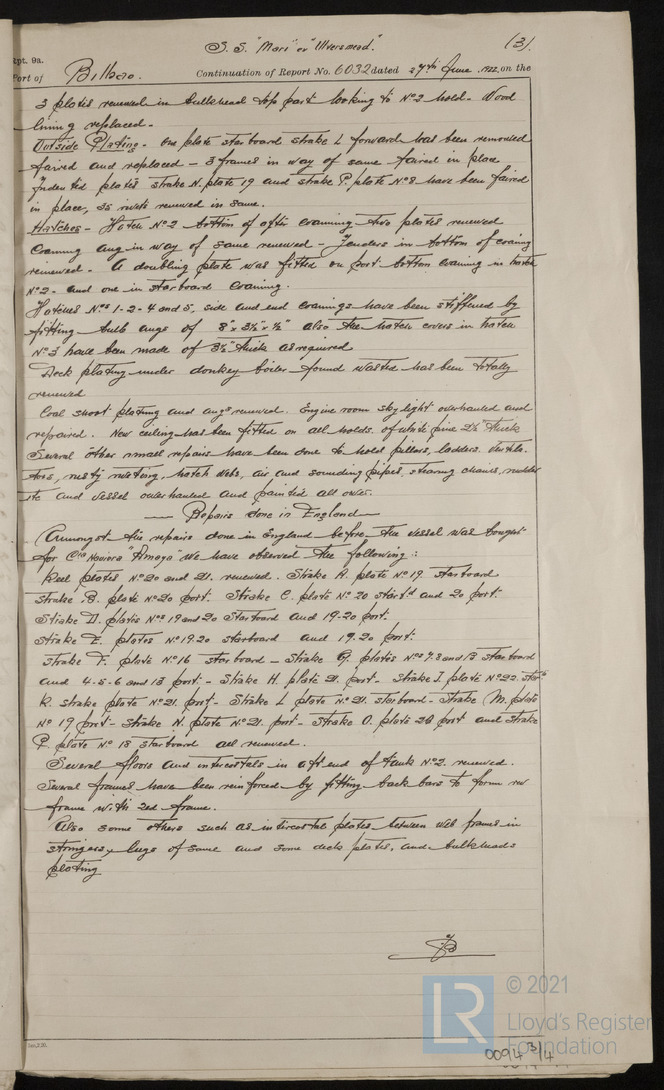 S. S. "Mari" ex "Ulversmead". (3).
Rpt. 9a.
Port of Bilbao. Continuation of Report No. 6032 dated 27th June 1922, on the
3 plates renewed in bulkhead top part looking to No 2 hold. Wood
lining replaced.
Outside Plating - One plate starboard strake L forward has been removed
faired and replaced - 3 frames in way of same faired in place
Indented plates strake N. plate 19 and strake P. plate No 8 have been faired
in place, 35 rivets renewed in same.
Hatches - Hatch No 2 bottom of after coaming two plates renewed
Coaming ang in way of same renewed - Fenders in bottom of coaming
renewed. A doubling plate was fitted on port bottom coaming in hatch
No 2 - and one in starboard coaming.
Hatches Nos 1-2-4 and 5, side and end coamings have been stiffened by
fitting bulb angs of 8" x 3½" x ½" also the hatch covers in hatch
No 3 have been made of 3½" thick as required
Deck plating under donkey boiler found wasted has been totally
renewed
Coal shoot plating and angs renewed. Engine room sky light overhauled and
repaired. New ceiling has been fitted on all holds of white pine 2½" thick
Several other small repairs have been done to hold pillars, ladders,
hatch webs, air and sounding pipes, steering chains, rudder
etc and vessel overhauled and painted all over.
Repairs done in England
Amongst the repairs done in England before the vessel was bought
for Cia Naviera "Amaya" we have observed the following:
Keel plates No 20 and 21. renewed. Strake A. plate No 19 starboard
strake B. plate No 20 port. Strake C. plate No 20 starbd and 20 port.
Strake D. plates Nos 19 and 20 Starboard and 19-20 port.
Strake E. plates No 19.20 starboard and 19.20 port.
Strake F. plate No 16 starboard - Strake G. plates Nos 7.8 and 13 starboard
and 4-5-6 and 13 port. - Strake H. plate 21. port - Strake J. plate No 22. starbd
K. strake plate No 21. port - Strake L plate No 21. starboard - Strake M. plate
No 19 port - Strake N. plate No 21. port - Strake O. plate port and Strake
P. plate No 18 starboard all renewed.
Several floors and intercostals in aft end of tank No 2. renewed.
Several frames have been reinforced by fitting back bars to form
frame with 2ed frame.
Also some others such as intercostal plates between web frames in
stringers, lugs of same and some deck plates, and bulkheads
plating
© 2021
LR
Lloyd's Register
Foundation
0094 3/4